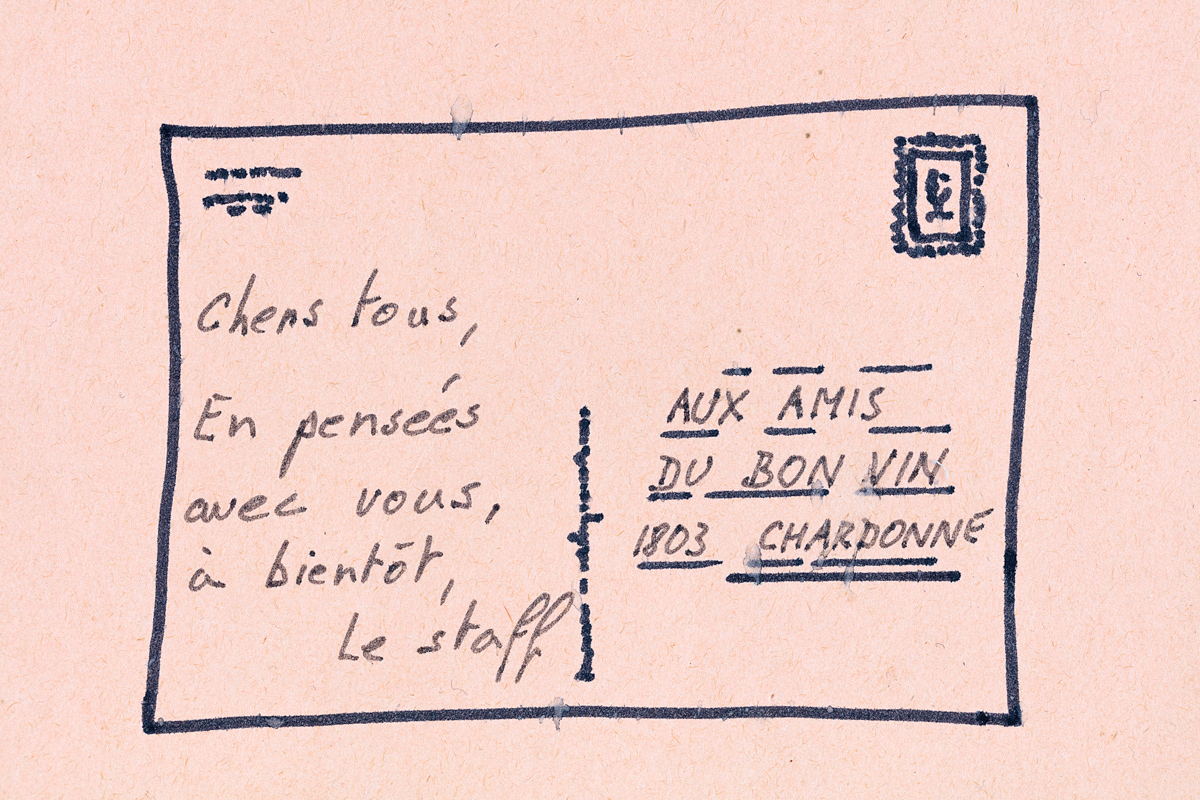 Chers tous,
En penseés
avec vous,
à bientôt,
Le staff
AUX AMIS
DU BON VIN
1803 CHARDONNE